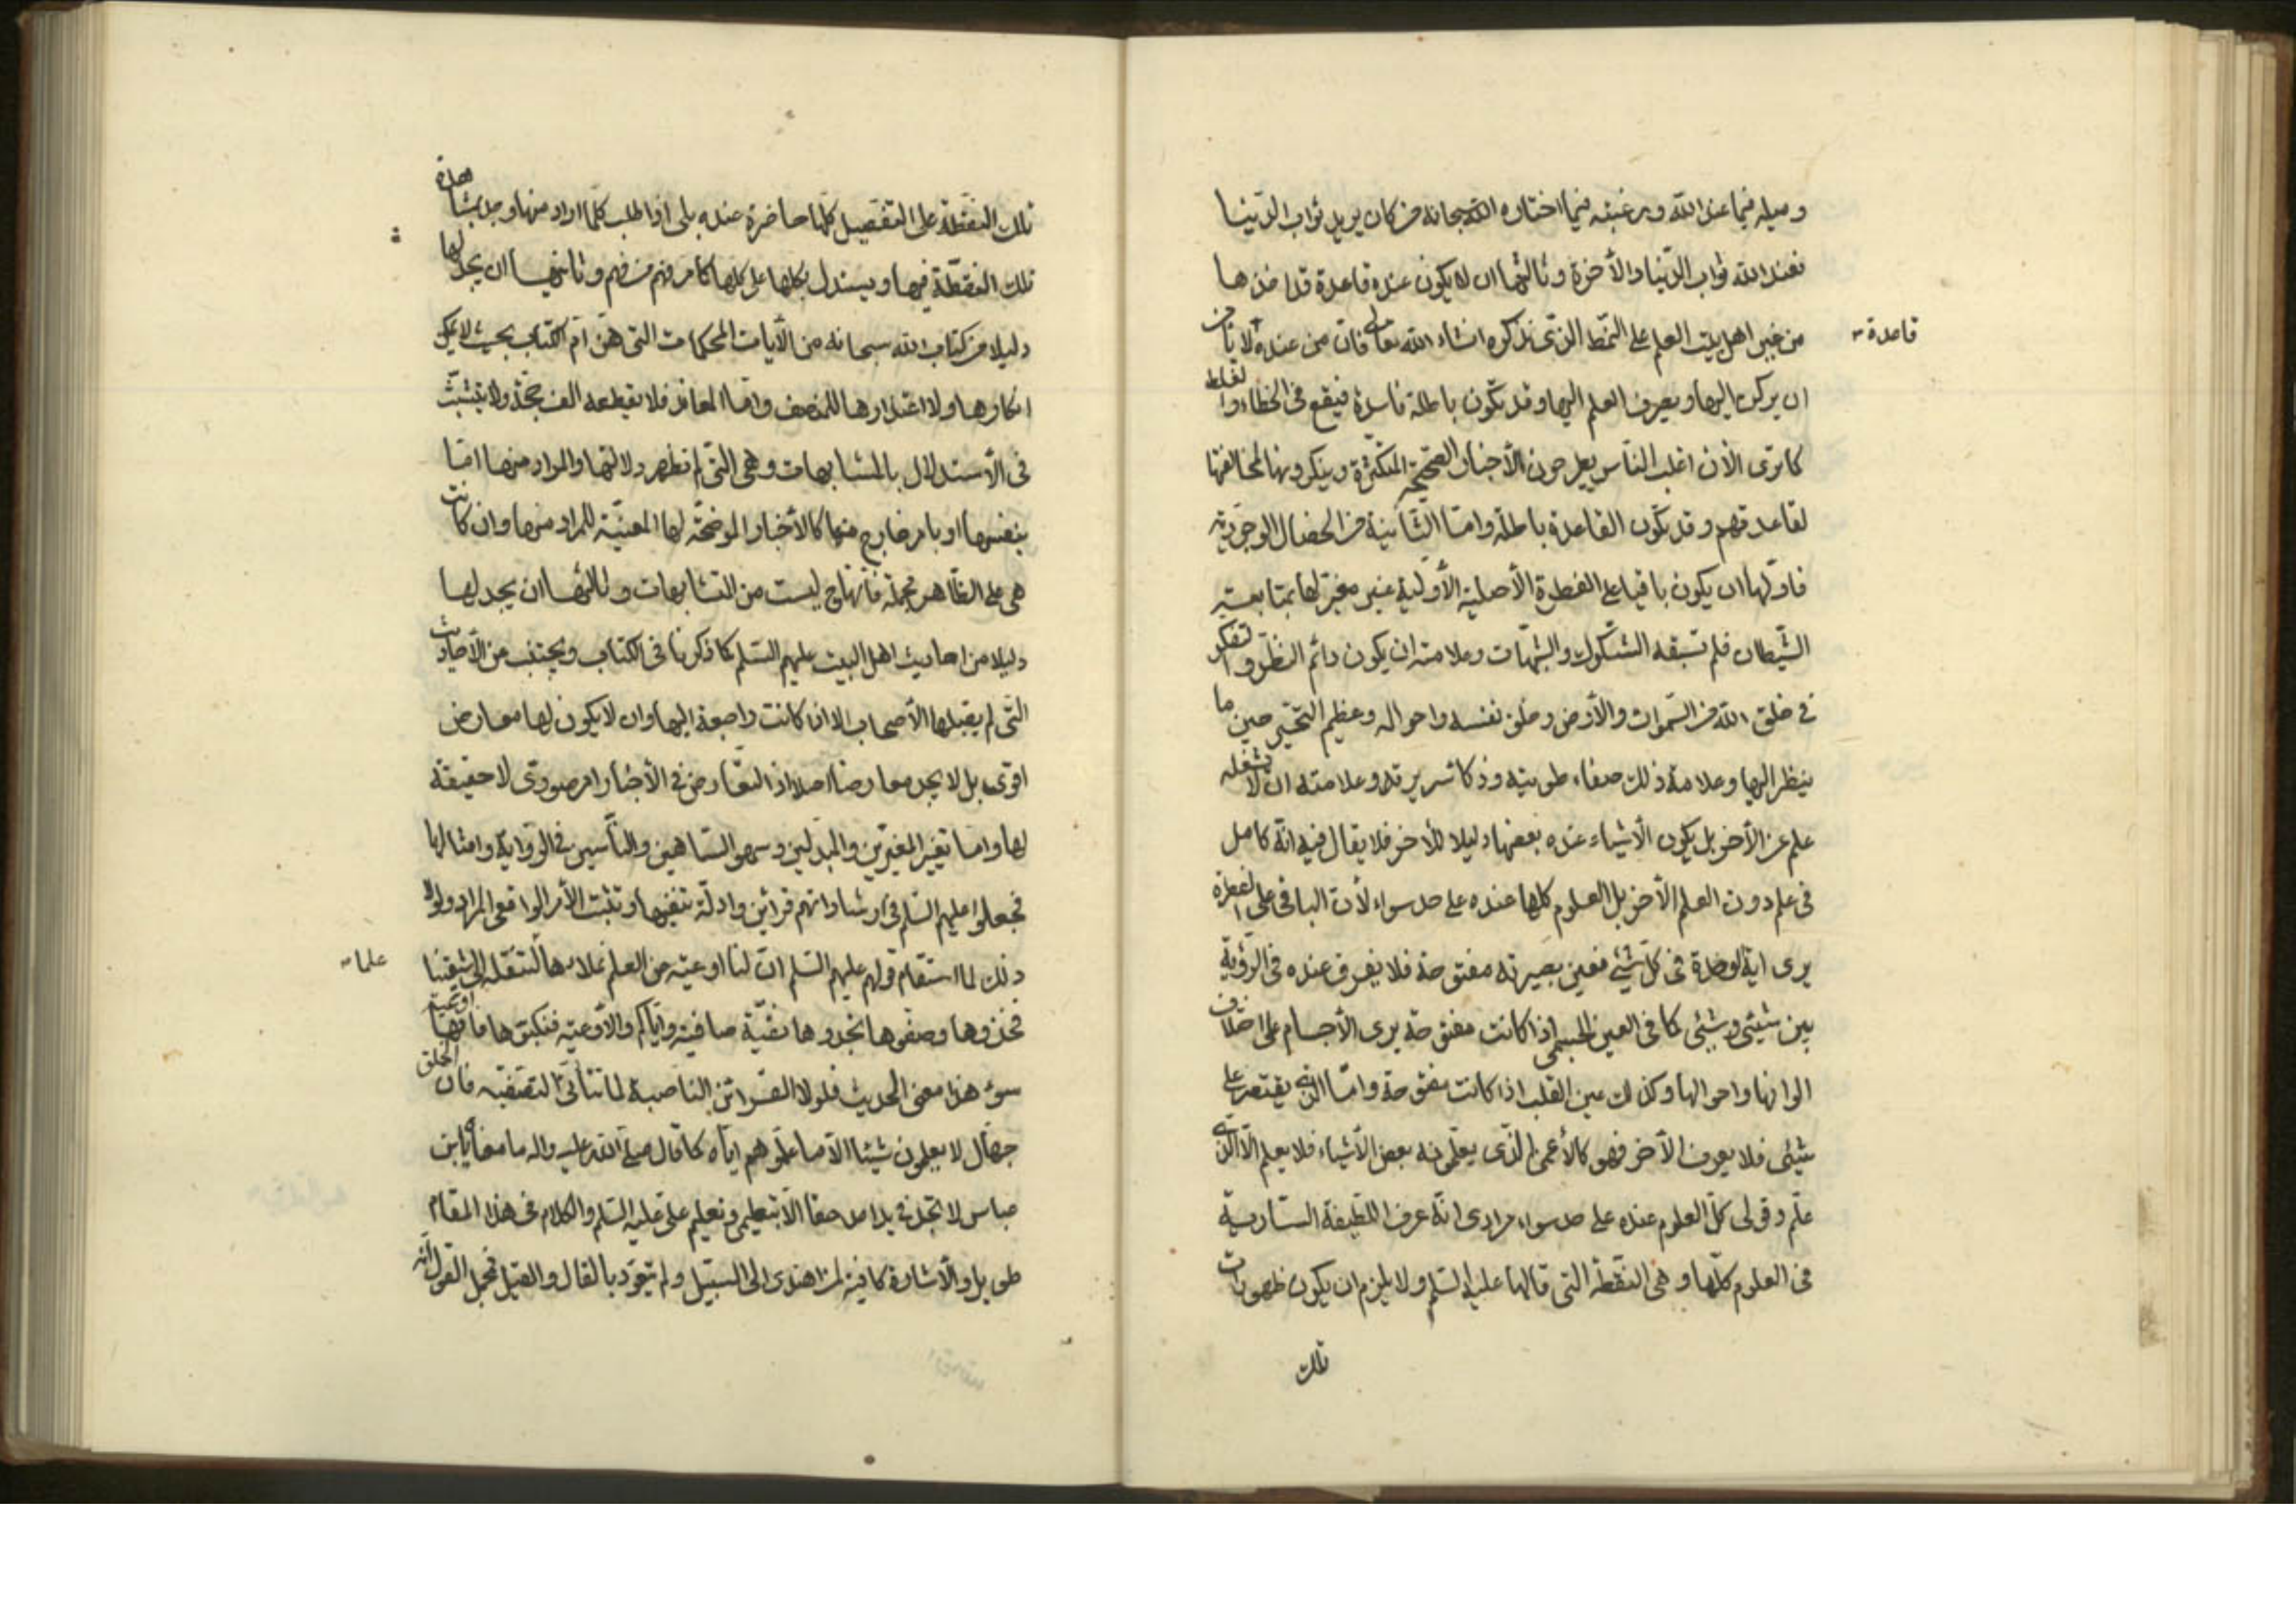 وميله فيما عند الله ورغبته فيما اختاره الله سبحانه فمن كان يريد ثواب الدنيا
فعند الله ثواب الدنيا والأخرة وثالثها ان لا يكون عنده قاعدة قد اخذها
من غير اهل بيت العلم على النمط الذي نذكره انشاء الله تعالى فان من عنده لا يأمن
قاعدة
ان يركن اليها ويصرف العلم اليها وقد تكون باطلة فاسدة فيقع في الخطاء والغلط
كما ترى الأن اغلب الناس يطرحون الأخبار الصحيحة المتكثرة وينكرونها لمخالفتها
لقاعدتهم وقد تكون القاعدة باطلة وامّا الثانية من الخصال الوجودية
فاولها ان يكون باقيا على الفطرة الأصلية الأولية غير مغير لها بمتابعة
الشيطان فلم تسبقه الشكوك والشبهات وعلامته ان يكون دائم النظر والتفكر
في خلق الله من السموات والأرض وخلق نفسه واحواله وعظيم التحير حين ما
ينظر اليها وعلامة ذلك صفاء طويته وذكاء سريرته وعلامته ان لا تشغله
علم عن الأخر بل يكون الأشياء عنده بعضها دليلا للأخر فلا يقال فيه انه كامل
في علم دون العلم الأخر بل العلوم كلها عنده على حد سواء لأن الباقي على الفطرة
يرى اية الوحدة في كل شيء فعين بصيرته مفتوحة فلا يفرق عنده في الرؤية
بين شيئ وشيئ كما في العين الجسمي اذا كانت مفتوحة يرى الأجسام على اختلاف
الوانها واحوالها وكذلك عين القلب اذا كانت مفتوحة وامّا الذي يقتصر على
شيئ فلا يعرف الأخر فهو كالأعمى الذي يعلمونه بعض الأشياء فلا يعلم الا الذي
علم وقولي كل العلوم عنده على حد سواء مرادي انه عرف اللطيفة السارية
في العلوم كلها وهي النقطة التي قالها عليه السلم ولا يلزم ان يكون ظهورات
تلك
تلك النقطة على التفصيل كلها حاضرة عنده بلى اذا طلب كلما اراد منها وجد بمشاهدة
تلك النقطة فيها ويستدل بكلها على كلها كما مر فهم من فهم وثانيها ان يجد لها
دليلا من كتاب الله سبحانه من الأيات المحكمات التي هن ام الكتاب بحيث لا يمكن
انكارها ولا اعتذارها للمنصف وامّا المعاند فلا يقطعه الف حجة ولا يتشبث
في الأستدلال بالمتشابهات وهي التي لم تظهر دلالتها والمراد منها امّا
بنفسها او بامر خارج منها كالأخبار الموضحة لها المعينة للمراد منها وان كانت
هي على الظاهر مجملة فانها ح ليست من المتشابهات وثالثها ان يجد لها
دليلا من احاديث اهل البيت عليهم السلم كما ذكرنا في الكتاب ويجتنب من الأحاديث
التي لم يقبلها الأصحاب الا ان كانت راجعة اليها وان لا يكون لها معارض
اقوى بل لا يجد معارضا اصلا اذ التعارض في الأخبار امر صوري لا حقيقة
لها وامّا تغيير المغيرين والمبدلين وسهو الساهين والناسين في الرواية وامثالها
فجعلوا عليهم السلم في ارشاداتهم قرائن وادلة تنفيها وتثبت الأمر الواقعي المراد ولولا
ذلك لما استقام قولهم عليهم السلم ان لنا اوعية من العلم نملاءها لتنقله الى شيعتنا
علما
فخذوها وصفوها تجدوها نقية صافية واياكم والأوعية فنكبوها فانها اوعية
سوء هذا معنى الحديث فلولا القرائن الناصبة لما تتأتى التصفية فان الخلق
جهال لا يعلمون شيئا الا ما علموهم اياه كما قال صلى الله عليه واله ما معناه يا بن
عباس لا تجد في يد احد حقا الا بتعليمي وتعليم علي عليه السلم والكلام في هذا المقام
طويل والأشارة كافية لمن اهتدى الى السبيل ولم يتعود بالقال والقيل فمجمل القول انه